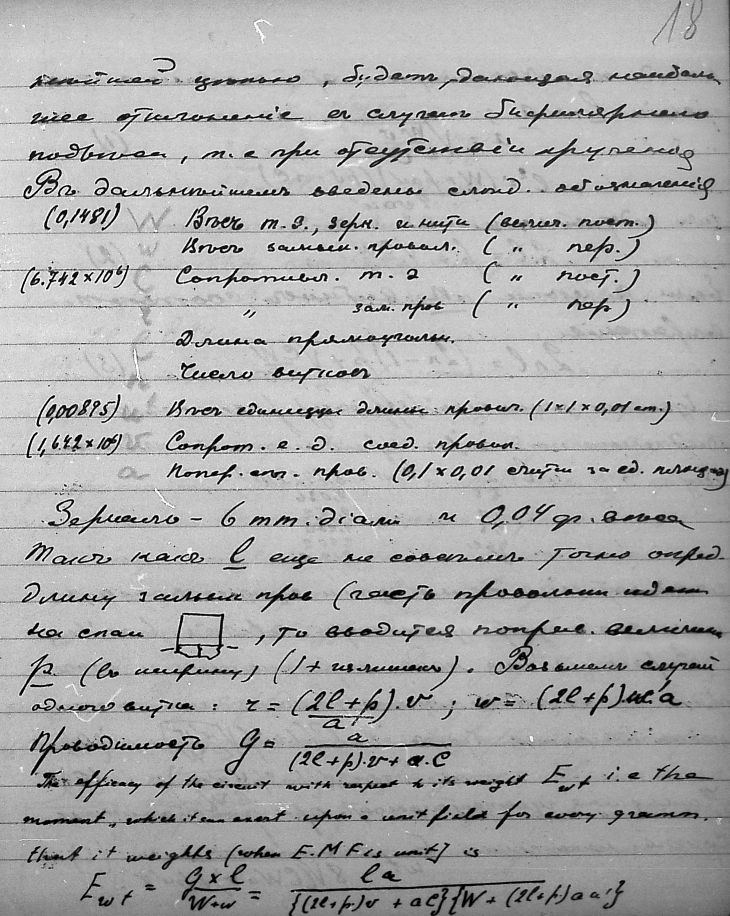 18
цѣпью, будетъ, дающая наиболь
шее отклоненіе въ случаѣ бифилярнаго
подвѣса, т.е при отсутствіи крученія
Въ дальнѣйшемъ введены слѣд. обозначенія
(0,1481) Вѣсъ т.э., зерк. и нити (велич. пост.)
Вѣсъ замык. провол. ( " пер.)
(6.742×10⁶) Сопротивл. т. э ( " пост.)
" зам. пров ( " пер)
Длина прямоугольн.
Число витковъ
(0,00895) Вѣсъ единицы длины провол. (1×1×0,01 cm.)
(1,642×10⁶) Сопрот. е. д. соед. провол.
Попер. сѣч. пров. (0,1×0,01 считая за ед. площади)
Зеркало – 6 mm. діам и 0,04 гр. вѣса
Такъ какъ l еще не совсѣмъ точно опред.
длину замык пров (часть проволоки идетъ
на спаи , то вводится поправ. величина
p. (въ ширину) (1 + излишекъ). Возьмемъ случай
одного витка: r = (2l+p)/a . v ; w = (2l+p) . a
Проводимость G = a/((2l+p).v + a.C)
The efficacy of the circuit with respect to its weight E_wt i.e the
moment, which it can exert upon a unit field for every gramm.
that it weights (when E.M.F is unit] is
E_wt = (g×l)/(W+w) = la/({(2l+p)v + aC}{W + (2l+p)aa'})